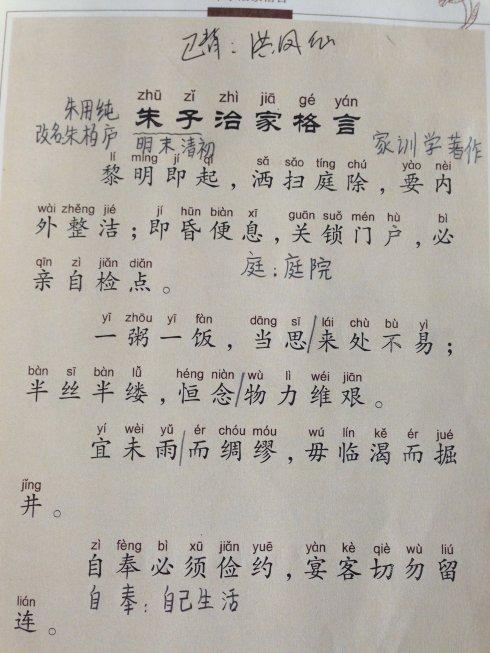 已背：洪凤仙
zhū zǐ zhì jiā gé yán
朱用纯
朱子治家格言
改名朱柏庐
明末清初
家训学著作
lí míng jí qǐ sǎ sǎo tíng chú yào nèi
黎明即起，洒扫庭除，要内
wài zhěng jié jí hūn biàn xī guān suǒ mén hù bì
外整洁；即昏便息，关锁门户，必
qīn zì jiǎn diǎn
亲自检点。
庭：庭院
yī zhōu yī fàn dāng sī lái chù bù yì
一粥一饭，当思/来处不易；
bàn sī bàn lǚ héng niàn wù lì wéi jiān
半丝半缕，恒念/物力维艰。
yí wèi yǔ ér chóu móu wú lín kě ér jué
宜未雨/而绸缪，毋临渴而掘
jǐng
井。
zì fèng bì xū jiǎn yuē yàn kè qiè wù liú
自奉必须俭约，宴客切勿留
lián
连。
自奉：自己生活